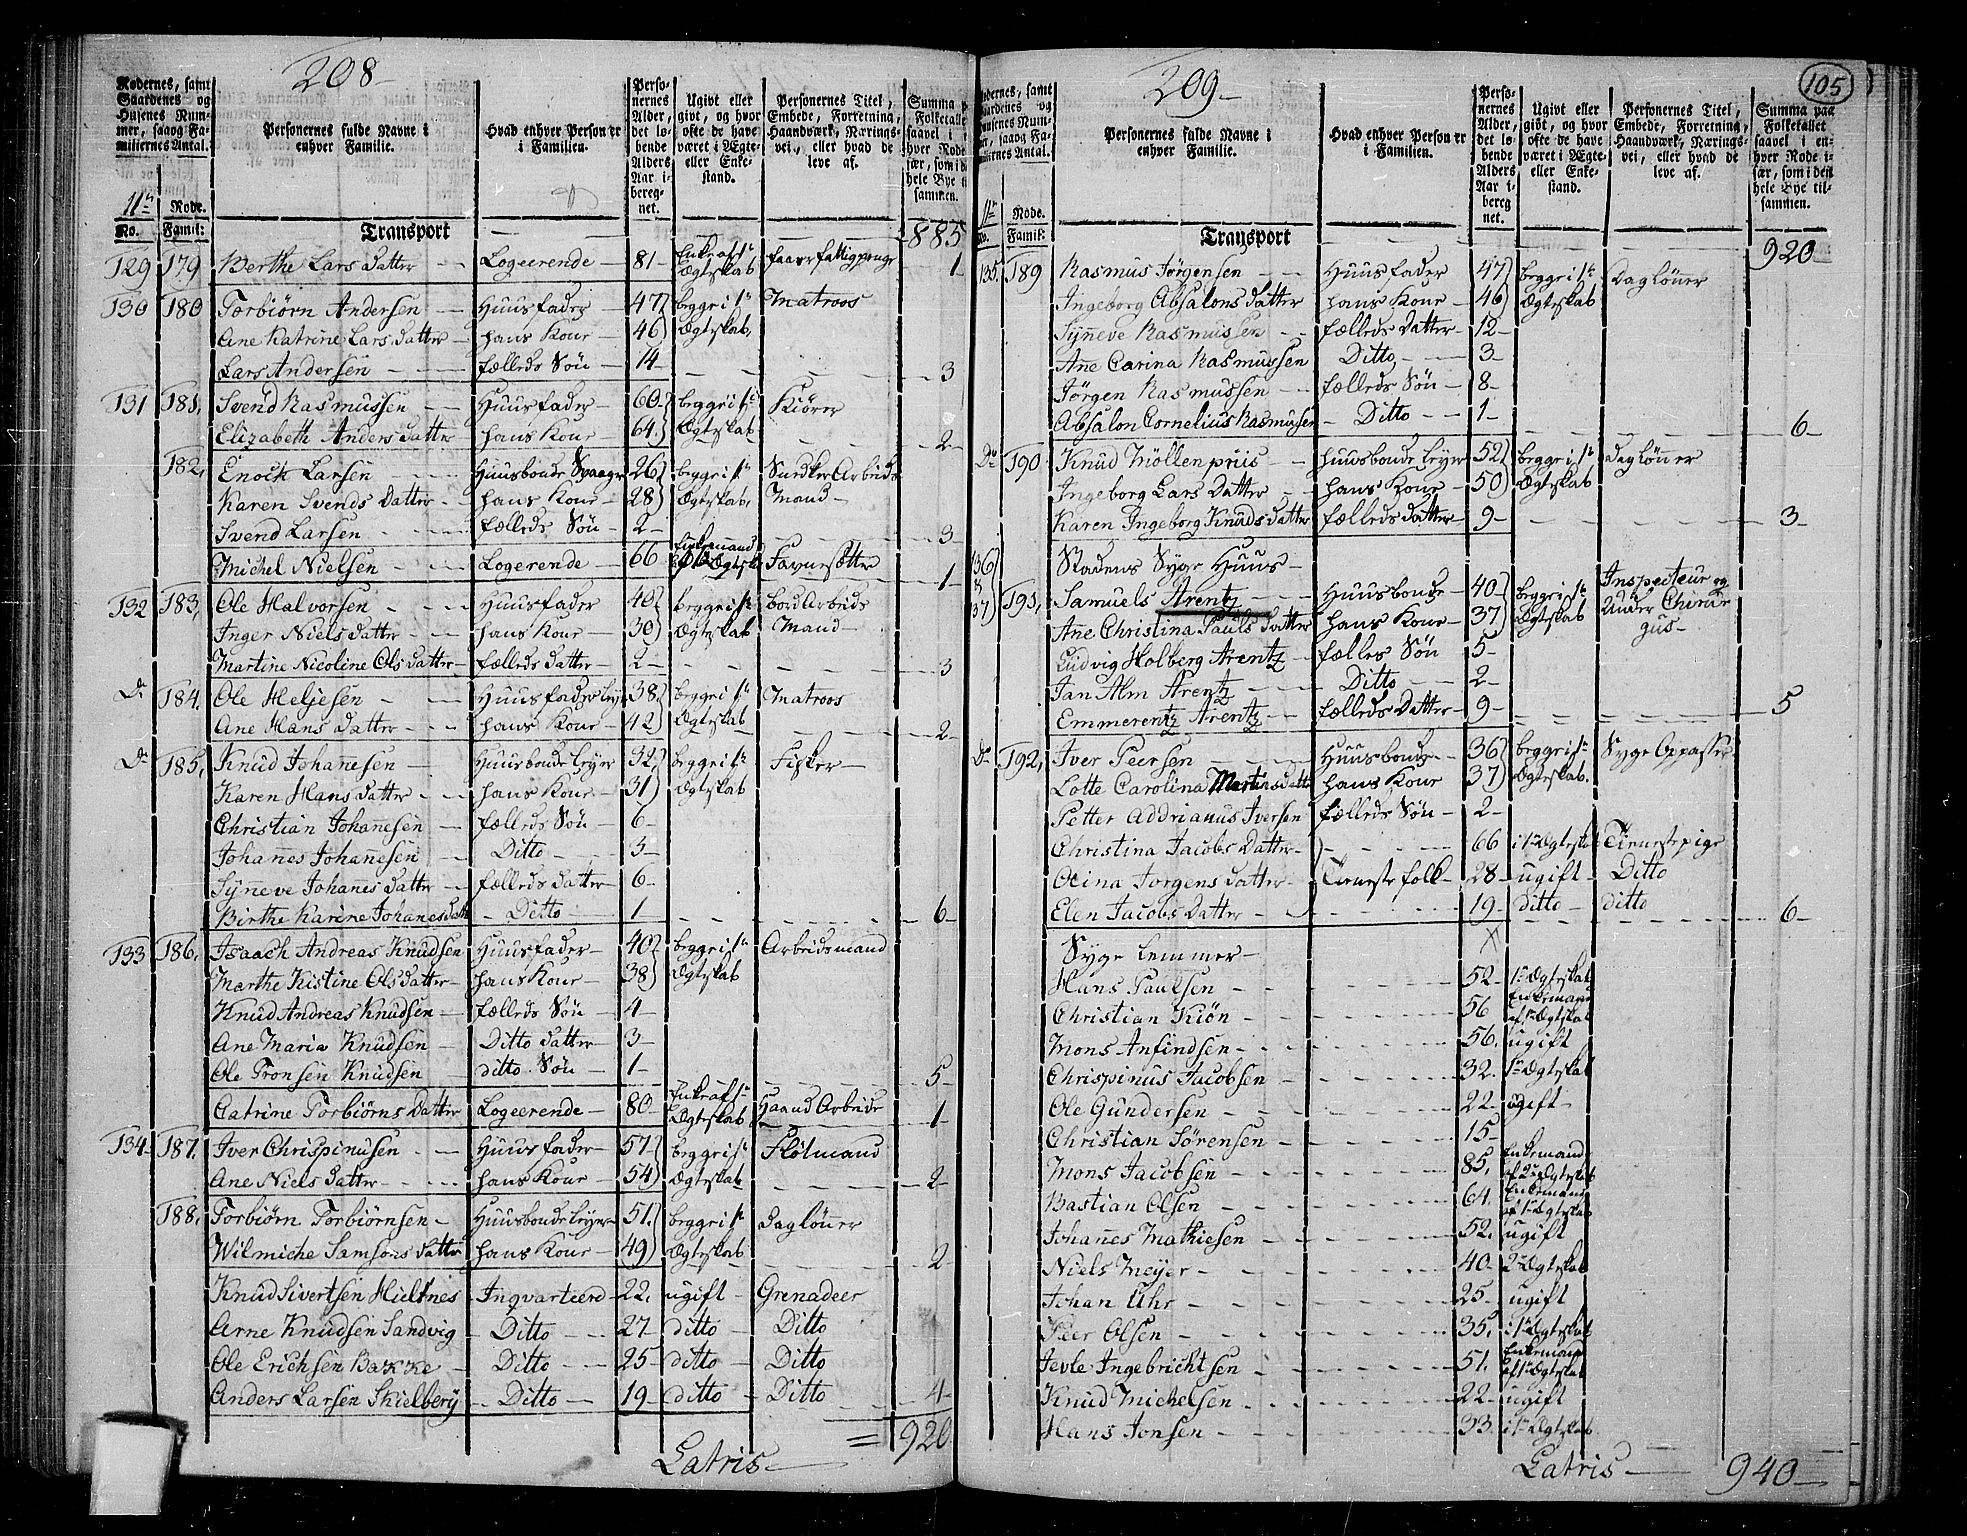 208-
Rodernes, samt Gaardenes og Husenes Nummer, saavog Familiernes Antal.
Personernes fulde Navne i enhver Familie.
Hvad enhver Person er i Familien.
Personernes Alder, det løbende Alders Aar iberegnet.
Ugivt eller givt, og hvor ofte de have været i Ægte- eller Enkestand.
Personernes Titel, Embede, Forretning, Haandværk, Næringsvei, eller hvad de leve af.
Summa p Folketalle saavel i hver Rode ær, som i de hele Bye til sammen.
11te Rode.
No. Famil:
Transport 885
129 179 Berthe Lars datter Logeerende 81 Enke af 1te Ægteskab faaer fattigpenge 1
130 180 Torbiørn Andersen Huusfader 47 begge i 1te Matroos
Ane Katrine Lars datter hans Kone 46 Ægteskab
Lars Andersen fælleds Søn 14 3
131 181, Svend Rasmussen Huusfader 60 begge i 1te Kiører
Elizabeth Anders datter hans Kone 64 Ægteskab 2
182, Enock Larsen Huusbonde Svaager 26 begge i 1te Arbeids
Karen Svends datter hans Kone 28 Ægteskab Mand
Svend Larsen fælleds Søn 2 3
Michel Nielsen Logerende 66 Enkemand Favnesætter 1
132 183, Ole Halvorsen Huusfader 40 begge i 1te bord Arbeids
Inger Niels datter hans Kone 30 Ægteskab Mand
Martine Nicoline Ols datter fælleds datter 2 3
Do 184. Ole Heljesen Huusfader leyer 38 begge i 1te Matroos
Ane Hans datter hans Kone 42 Ægteskab 2
Do 185, Knud Johanesen Huusbonde leyer 32 begge i 1te Fisker
Karen Hans datter hans Kone 31 Ægteskab
Christian Johannesen fælleds Søn 6
Johannes Johannesen Ditto 3
Synneve Johannes datter fælleds datter 6
Birthe Karine Johanes datt Ditto 1 6
133 186, Isaach Andreas Knudsen Huusfader 40 begge i 1te Arbeidsmand
Marthe Kistine Ols datter hans Kone 38 Ægteskab
Knud Andreas Knudsen fælleds Søn 4
Ane Maria Knudsen Ditto datter 3
Ole Tronsen Knudsen ditto Søn 1 5
Catrine Torbiørns datter Logeerende 80 Enke af 1te Ægteskab Haand Arbeide 1
134 187. Iver Chrispinusen Huusfader 57 begge i 1te Fløtmand
Ane Niels datter hans Kone 54 Ægteskab 2
188. Torbiørn Torbiørnsen Huusbonde leyer 51 begge i 1te dagløner
Wilmiche Samsons datter hans Kone 49 Ægteskab 2
Knud Sivertsen Hieltnes Inqvarteerd 22. ugift Grenadeer
Arne Knudsen Sandvig Ditto 27 ditto Ditto
Ole Erichsen Bakke Ditto 25 ditto Ditto
Anders Larsen Skielberg Ditto 19 ditto Ditto 4
Latris = 920
209-
105
Personernes fulde Navne i enhver Familie.
Hvad enhver Person er i Familien.
Personernes Alder, det løbende Alders Aar iberegnet.
Ugivt eller givt, og hvor ofte de have været i Ægte- eller Enkestand.
Personernes Titel, Embede, Forretning, Haandværk, Næringsvei, eller hvad de leve af.
Summa paa Folketallet saavel i enhver Rode især, som i den hele Bye tilsammen.
11te Rode.
No. Famil:
Transport 920
135 189 Rasmus Jørgensen Huusfader 47 begge i 1te Dagløner
Ingeborg Absalons datter hans Kone 46 Ægteskab
Synneve Rasmussen fælleds datter 12
Ane Carina Rasmussen Ditto 3
Jørgen Rasmussen fælleds Søn 8
Absalon Cornelius Rasmussen Ditto 1 6
Do 190 Knud Möllenpriis huusbonde leyer 52 begge i 1te dagløner
Ingeborg Lars datter hans Kone 50 Ægteskab
Karen Ingeborg Knuds datter fælleds datter 9 3
136 Stadens Syge Huus
& 137 191, Samuels Arentz Huusbonde 40 begge i 1te Inspecteur og
Ane Christina Pauls datter hans Kone 37 Ægteskab Under Chirurgus
Ludvig Holberg Arentz fælles Søn 5
Jan Alm Arentz Ditto 2
Emmerentz Arentz fælleds datter 9 5
Do 192, Iver Peersen Huusbonde 36 begge i 1te Syge Oppasser
Lotte Carolina Martins datt hans Kone 37 Ægteskab.
Petter Addrianus Iversen fælleds Søn 2
Christina Jacobs datter 66 i 1te Ægtesk Tienestepige
Ocina Jorgens datter Tienestefolk 28 ugift Ditto
Elen Jacobs datter 19 ditto ditto 6
Syge Lemmer
Hans Paulsen 52 1te Ægteskab
Christian Kiøn 56 Enkemand af 1te Ægteskab
Mons Anfindsen 56. ugift
Chrispinus Jacobsen 32. 1te Ægteskab
Ole Gundersen 22 ugift
Christian Sørensen 15
Mons Jacobsen 85. Enkemand af 2det Ægteskab
Bastian Olsen 64. Enkemand af 1te Ægteskab
Johannes Mathiesen 52. ugift
Niels Meyer 40. 2det Ægteskab
Johan Uhr 25 ugift
Peer Olsen 35. i 1te Ægteskab
Jevle Ingebrichtsen 51. Enkemand af 1te Ægteskab
Knud Michelsen 22 ugift
Hans Jonsen 33. i 1te Ægteskab
Latris 940